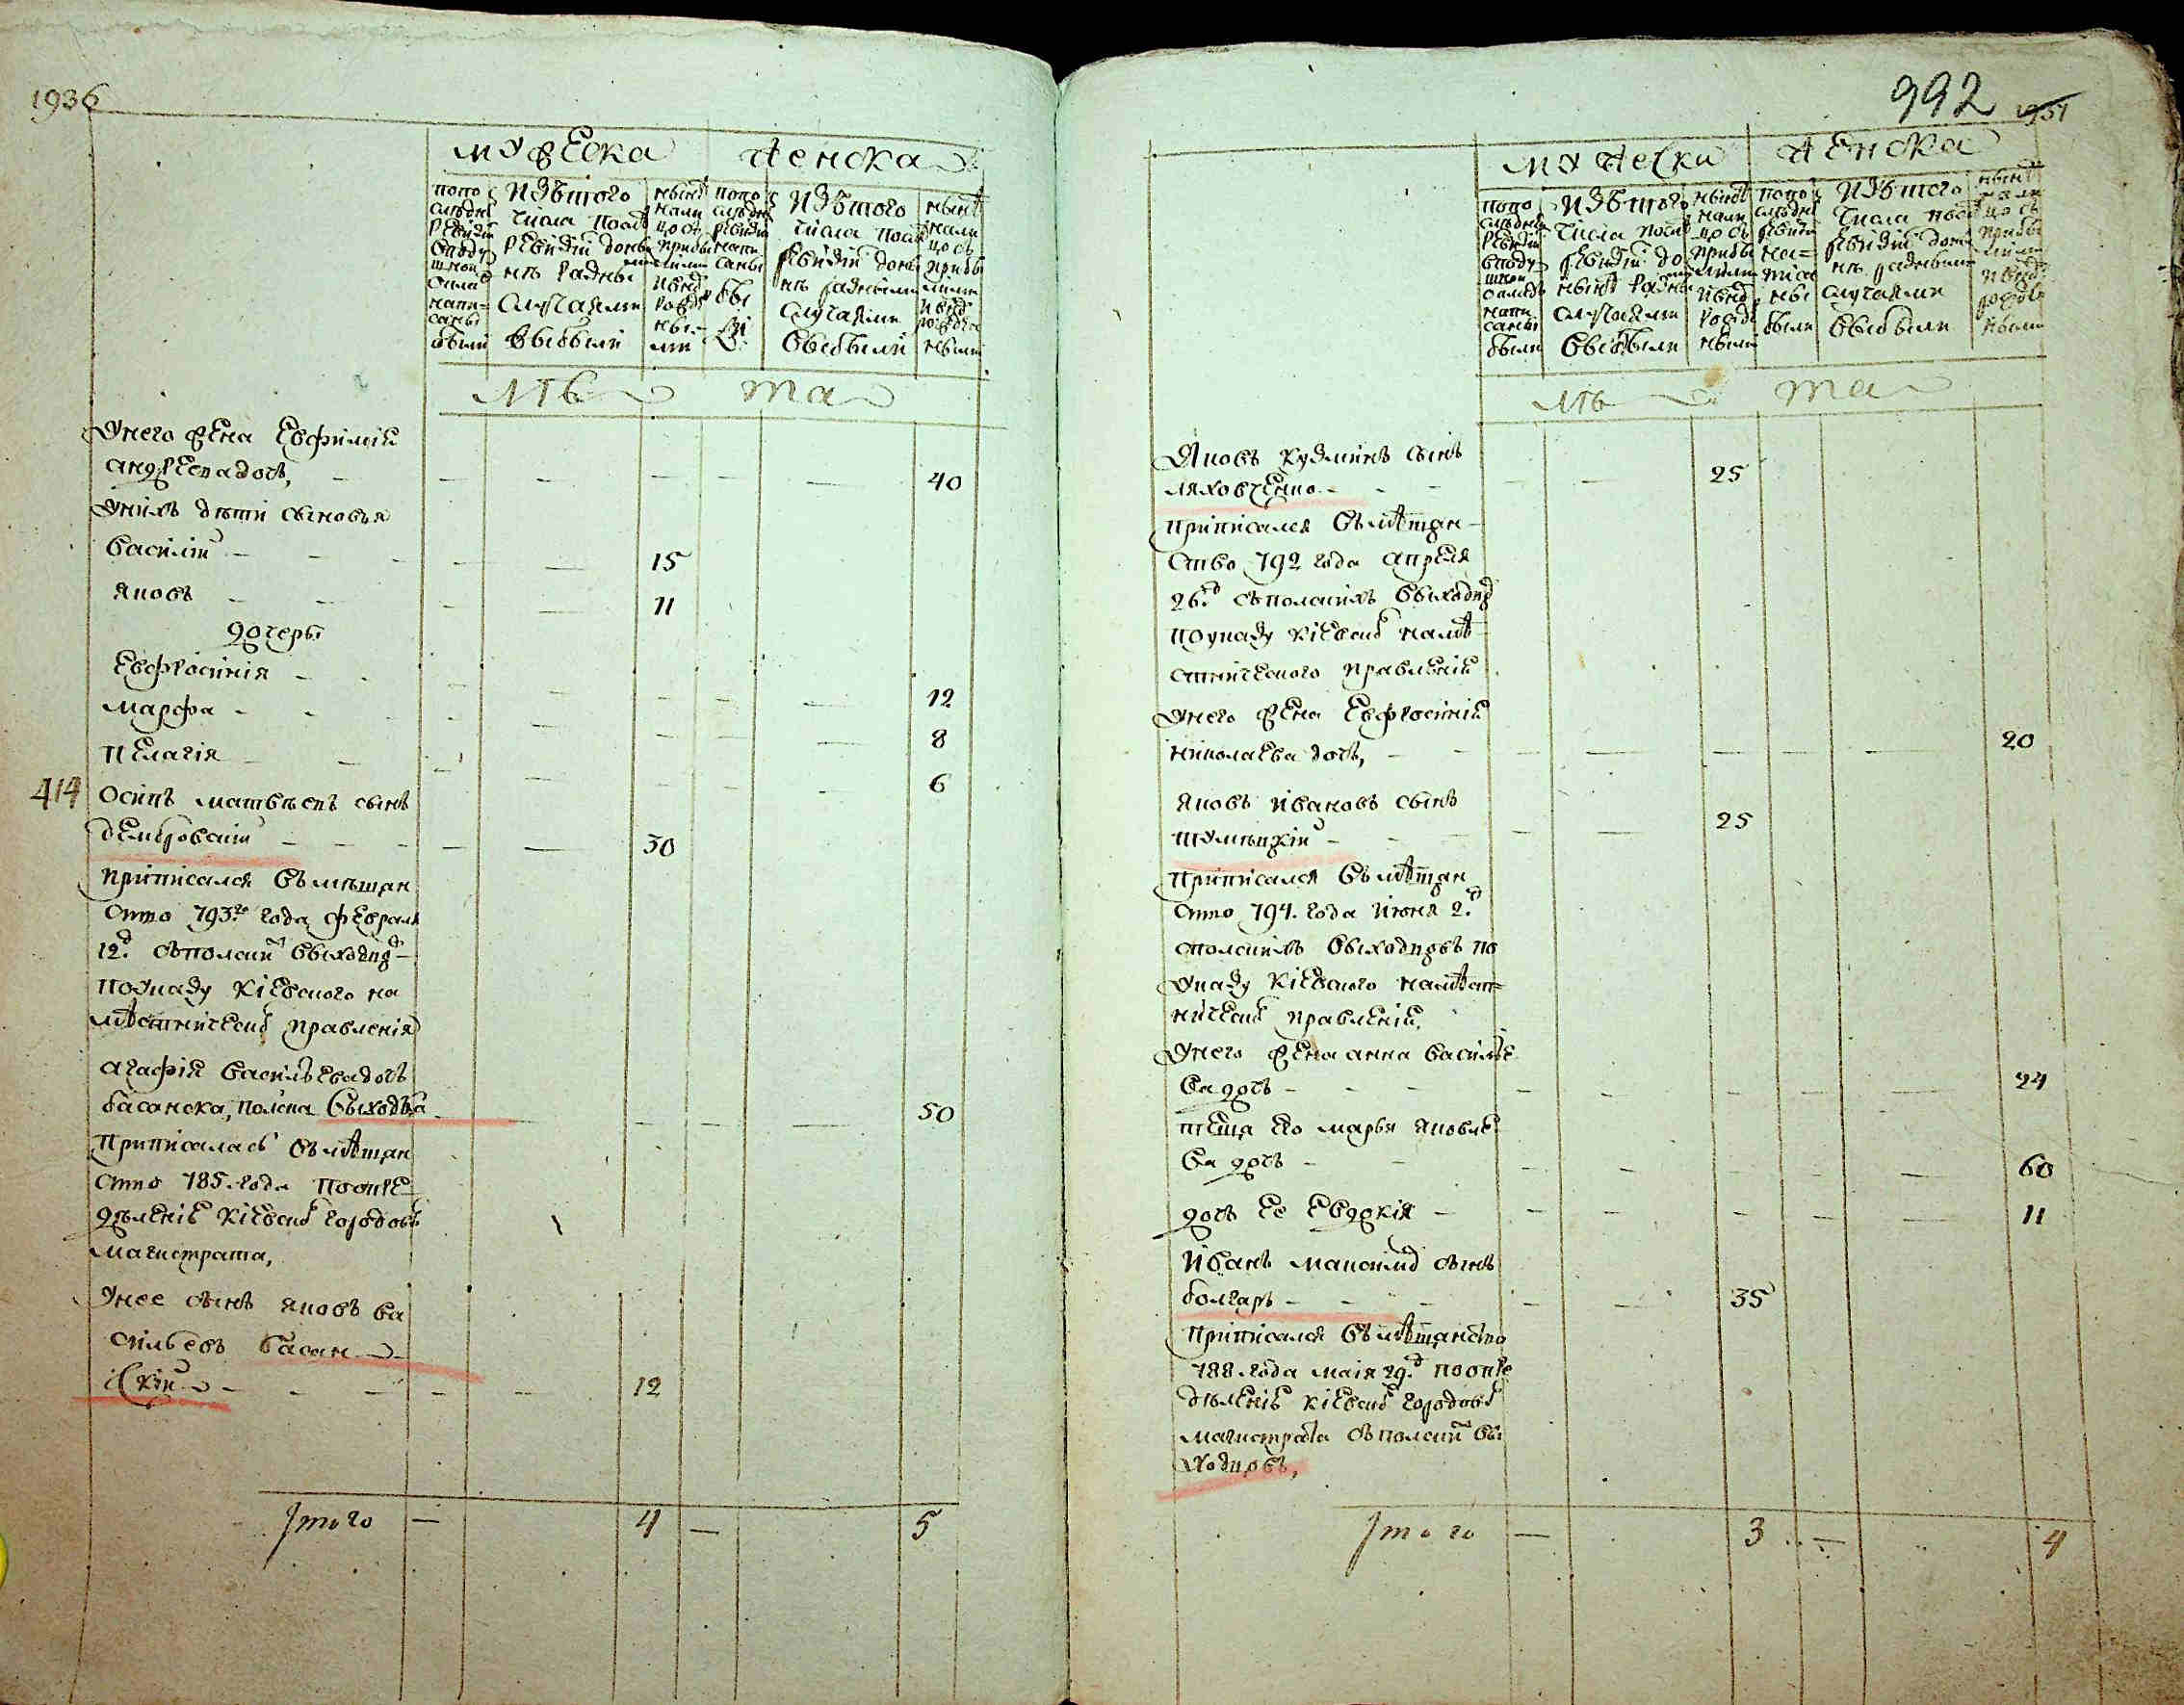 1936
мужеска женска
попо
следней
ревизии
поду
шном
окладе
напи=
саны
были
Изъ того
числа после
ревизии доны
не разными
случаями
выбыли
ныне
нали
цо съ
прибы
лыми
и внов
рожде
ны
ми
попо
следней
ревизии
напи
саны
бы
ли
Изъ того
числа после
ревизии доны
не разными
случаями
выбыли
ныне
нали
цо съ
прибы
лыми
и внов
рожден
ными
лѣ та
Унего жена Евфимия
андреева дочь, 40
Унихъ дѣти сыновья
василий 15
яковъ 11
дочеры
Евфросиния 12
марфа 8
пелагия 6
414 Осипъ матвѣевъ сынъ
демировский 30
приписался въ мѣщан
ство 793го года февраля
12д. съ полских выходцов
по указу киевского на
мѣстническог правления
агафия василъева дочь
басанска, полска выходъка 50
приписаласъ въ мѣщан
ство 785. года по опре
дѣлению киевског городовог
магистрата,
Унее сынъ яковъ ва
сильевъ басан
ский 12
Итого 4 5
992 1937
мужеска женска
попо
следней
ревизии
в поду
шном
окладе
напи
саны
были
Изъ того
числа после
ревизии до
ныне разны
случаями
выбыли
ныне
нали
цо съ
прибы
лыми
и внов
рожде
ными
попо
следней
ревизии
на=
писа
ны
были
Изъ того
числа после
ревизии доны
не разными
случаями
выбыли
ныне
нали
цо съ
прибы
лыми
и внов
рожде
ными
лѣ та
Яковъ кузминъ сынъ
ляховченко 25
приписался въ мѣщан
ство 792 года апреля
26д. съ полскихъ выходцов
по указу киевског намѣ
стнического правления
Унего жена Евфросиния
николаева дочь, 20
яковъ ивановъ сынъ
25
приписался въ мѣщан
ство 794. года июня 2.д
с полскихъ выходцовъ по
указу киевского намѣст=
ническог правления,
Унего жена анна василъе
ва дочь 24
теща его марья яковле
ва дочь 60
дочь ее евдокия 11
Иванъ максимов сынъ
болгаръ 35
приписался въ мѣщанство
788. года маия 29.д по опре
дѣлению киевског городовог
магистрата съ полских вы
ходцовъ,
Итого 3 4